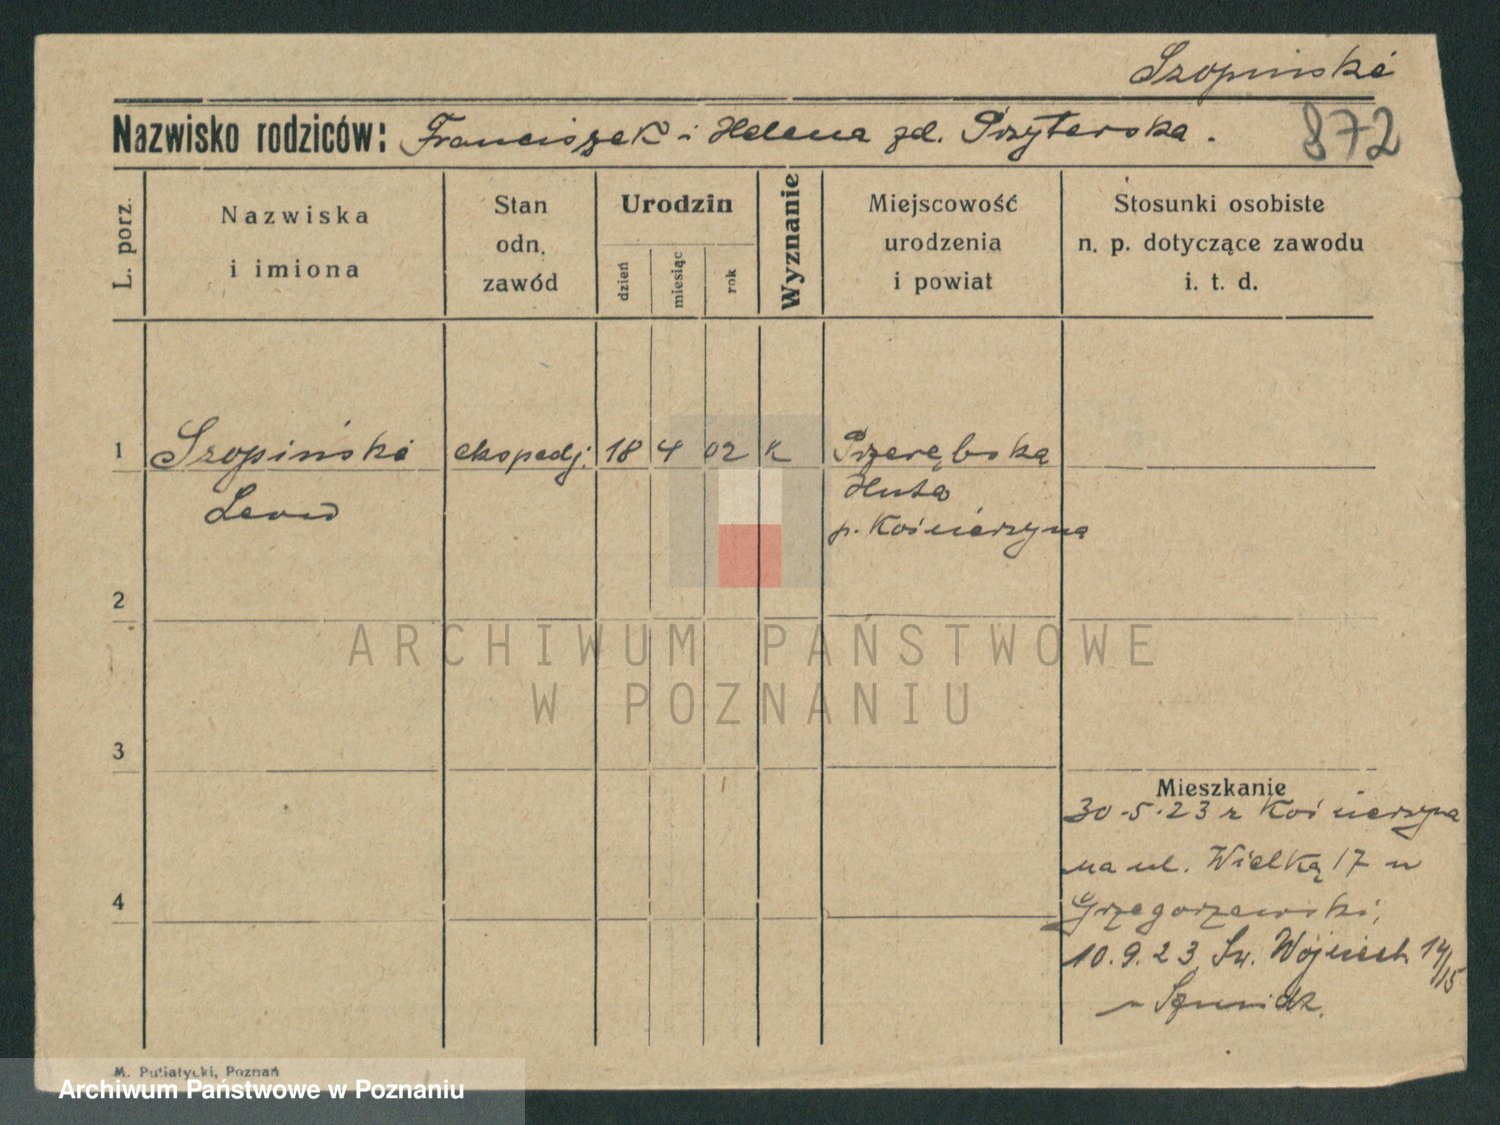 Szopiński
Nazwisko rodziców: Franciszek i Helena zd. Przytarska.
872
L. porz.
Nazwiska
i imiona
Stan
odn.
zawód
Urodzin
dzień
miesiąc
rok
Wyznanie
Miejscowość
urodzenia
i powiat
Stosunki osobiste
n. p. dotyczące zawodu
i. t. d.
1 Szopiński ekspedj. 18 4 02 k Przerębska
Leon Huta
p. Kościerzyna
2
3
4
Mieszkanie
30.5.23 z Kościerzyna
na ul. Wielką 17 u
Grzegorzewski,
10.9.23 Św. Wojciech 14/15
u Szmidt.
ARCHIWUM PAŃSTWOWE
W POZNANIU
M. Putiatycki, Poznań
Archiwum Państwowe w Poznaniu